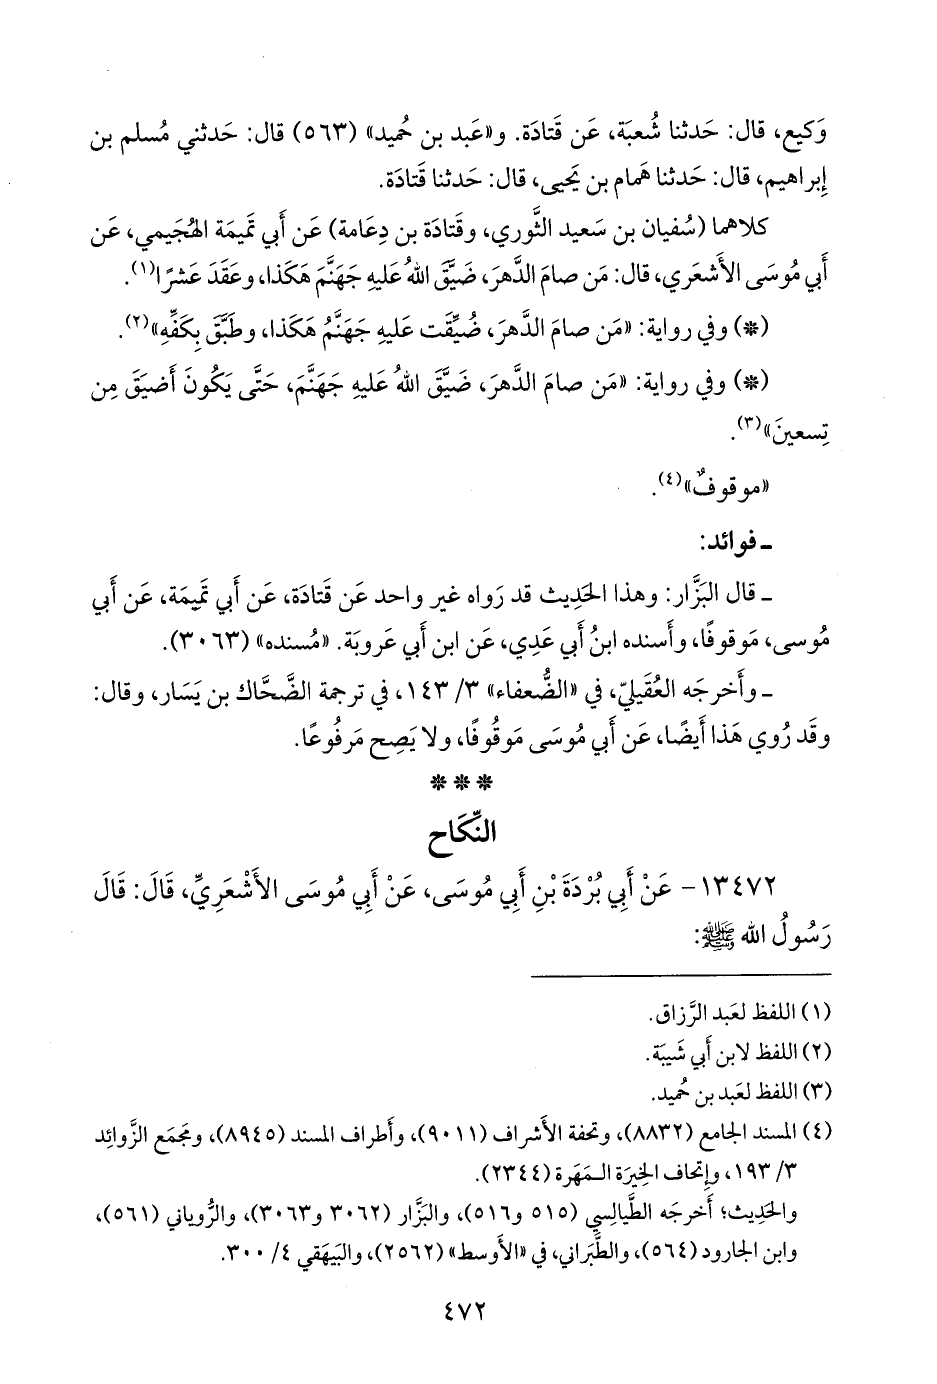 وَكيع، قال: حَدثنا شُعبَة، عَن قَتادَة. و«عَبد بن حُميد» (٥٦٣) قال: حَدثني مُسلم بن
إِبراهيم، قال: حَدثنا هَمام بن يَحيى، قال: حَدثنا قَتادَة.
كلاهما (سُفيان بن سَعيد الثَّوري، وقَتادَة بن دِعَامة) عَن أَبي تَميمَة الهُجَيمي، عَن
أَبي مُوسَى الأَشعَري، قال: مَن صامَ الدَّهرَ، ضَيَّقَ اللهُ عليهِ جَهَنَّمَ هَكذا، وعَقَدَ عَشرًا(١).
(*) وفي رواية: «مَن صامَ الدَّهرَ، ضُيِّقَت عليهِ جَهَنَّمُ هَكَذا، وطَبَّقَ بِكَفِّهِ»(٢).
(*) وفي رواية: «مَن صامَ الدَّهرَ، ضَيَّقَ اللهُ عَليهِ جَهَنَّمَ، حَتَّى يَكُونَ أَضيَقَ مِن
تِسعينَ»(٣).
«موقوفٌ»(٤).
ـ فوائد:
ـ قال البَزَّار: وهذا الحَدِيث قد رَواه غير واحد عَن قَتادَة، عَن أَبي تَمِيمَة، عَن أَبي
مُوسى، مَوقوفًا، وأَسنده ابنُ أَبي عَدِي، عَن ابن أَبي عَروبَة. «مُسنده» (٣٠٦٣).
ـ وأَخرجَه العُقَيليّ، في «الضُّعفاء» ٣/ ١٤٣، في ترجمة الضَّحَّاك بن يَسَار، وقال:
وقَد رُوي هَذا أَيضًا، عَن أَبي مُوسَى مَوقُوفًا، ولا يَصِح مَرفُوعًا.
* * *
النِّكَاح
١٣٤٧٢- عَنْ أَبِي بُرْدَةَ بْنِ أَبِي مُوسَى، عَنْ أَبِي مُوسَى الأَشْعَرِيِّ، قَالَ: قَالَ
رَسُولُ الله ﷺ:
(١) اللفظ لعَبد الرَّزاق.
(٢) اللفظ لابن أَبي شَيبَة.
(٣) اللفظ لعَبد بن حُميد.
(٤) المسند الجامع (٨٨٣٢)، وتحفة الأَشراف (٩٠١١)، وأَطراف المسند (٨٩٤٥)، ومَجمَع الزَّوائِد
٣/ ١٩٣، وإِتحاف الخِيرَة الـمَهَرة (٢٣٤٤).
والحَدِيث؛ أَخرجَه الطَّيالِسي (٥١٥ و٥١٦)، والبَزَّار (٣٠٦٢ و٣٠٦٣)، والرُّوياني (٥٦١)،
وابن الجارود (٥٦٤)، والطَّبَراني، في «الأَوسط» (٢٥٦٢)، والبَيهَقي ٤/ ٣٠٠.
٤٧٢